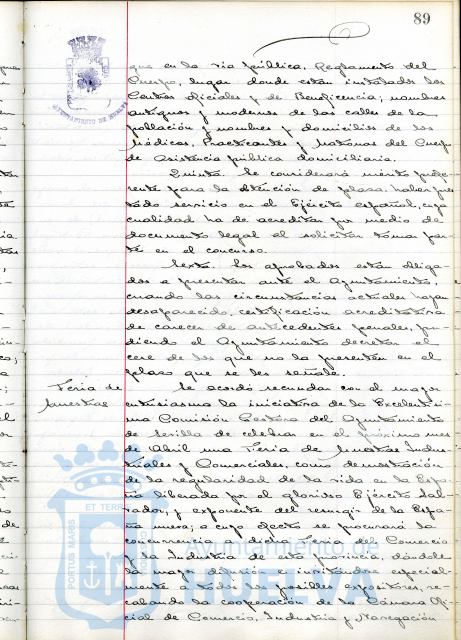 89
que en la via pública, Reglamento del
Cuerpo, lugar donde estan instalados los
Centros oficiales y de Beneficencia; nombres
antiguos y modernos de las calles de la
población y nombres y domicilios de los
Médicos, Practicantes y Matronas del Cuerpo
de Asistencia pública domiciliaria.
Quinta. Se considerará mérito prefe-
rente para la obtención de plaza, haber pres-
tado servicio en el Ejército español, cuya
cualidad ha de acreditar por medio de
documento legal al solicitar tomar par-
te en el concurso.
Sexta. Los aprobados están obliga-
dos a presentar ante el Ayuntamiento,
cuando las circunstancias actuales hayan
desaparecido, certificación acreditativa
de carecer de antecedentes penales, pu-
diendo el Ayuntamiento decretar el
cese de los que no la presenten en el
plazo que se les señale.
Feria de
Muestras
Se acordó secundar con el mayor
entusiasmo la iniciativa de la Excelentísi-
ma Comisión Gestora del Ayuntamiento
de Sevilla de celebrar en el próximo mes
de Abril una Feria de Muestras Indus-
triales y Comerciales, como demostración
de la regularidad de la vida en la Espa-
ña liberada por el glorioso Ejército Sal-
vador, y exponente del resurgir de la Espa-
ña nueva; a cuyo efecto se procurará la
concurrencia a dicha Feria del Comercio
y la Industria de esta provincia, dándole
la mayor difusión e invitándose especial-
mente a todos los posibles expositores, re-
cabando la cooperación de la Cámara Ofi-
cial de Comercio, Industria y Navegación
AYUNTAMIENTO DE HUELVA
PORTUS MARIS ET TERR
Ayuntamiento de
HUELVA